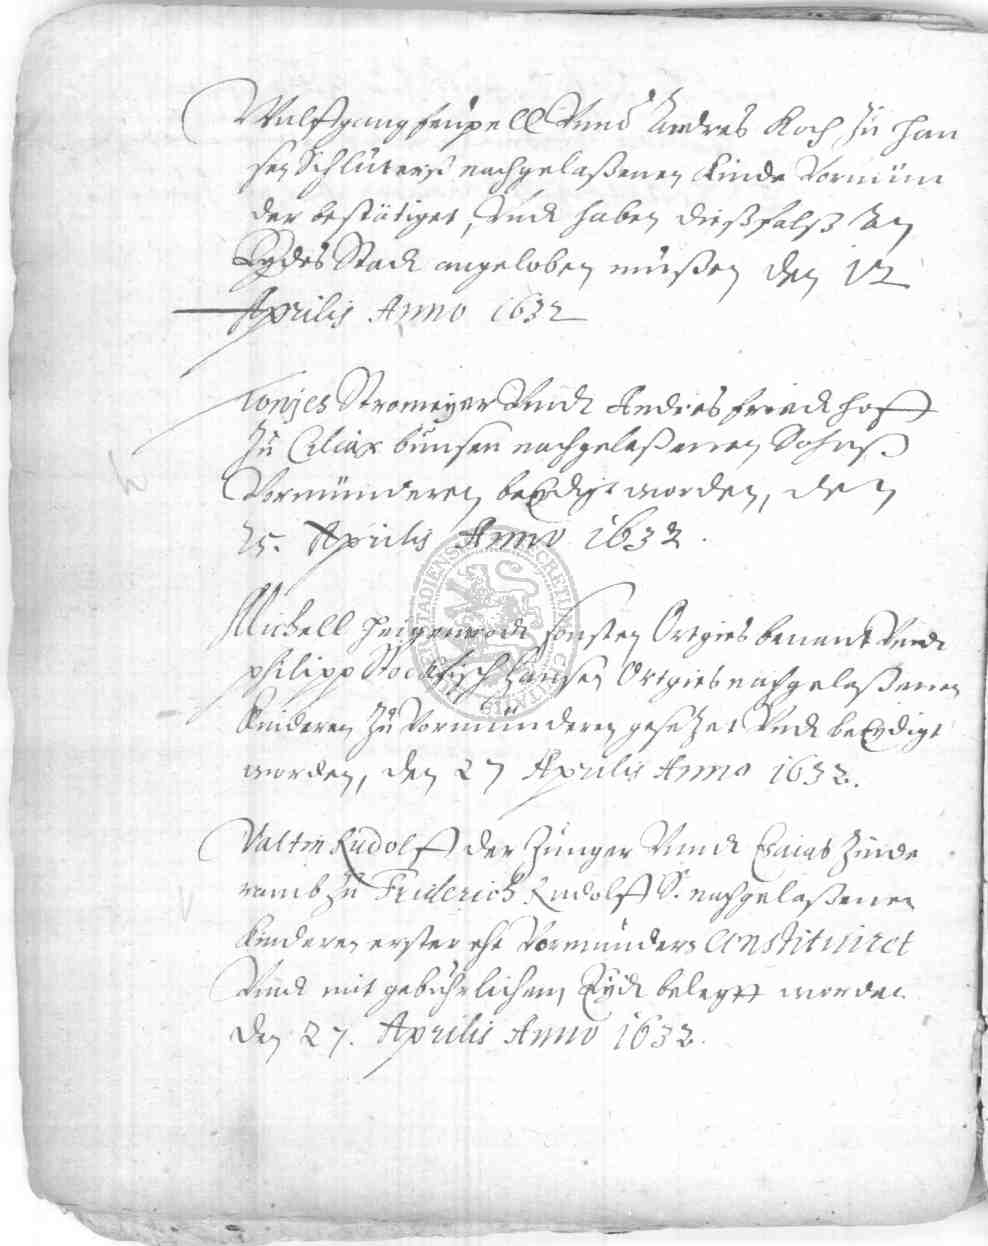 Wulffgang Hüpell Vnnd Andres Koch zu Han
sen Schlüters nachgelaßenen Kinde Vormün
der bestätiget, Vnd haben dießfalß An
Eydes Stadt angeloben müßen den 12
Aprilis Anno 1632
Tonjes Stromeyer Vnndt Andres Friedthoff
zu Ciliax Bunsen nachgelaßenen Sohnß
Vormünderen beEydigt worden, den
25. Aprilis Anno 1632.
Michell sonsten Ortgies benant Vnd
Philipp Stockfisch Hansen Ortgies nachgelaßenen
Kinderen zu Vormünderen gesetzet Vnd beEydigt
worden, den 27 Aprilis Anno 1632.
Valtin Rudolff der Jünger Vnndt Esaias Zinde
ramb zu Friderich Rudolff S. nachgelaßenen
Kinderen erster ehe Vormünders Constituiret
Vnndt mit gebührlichem Eydt belegtt worden
den 27. Aprilis Anno 1632.